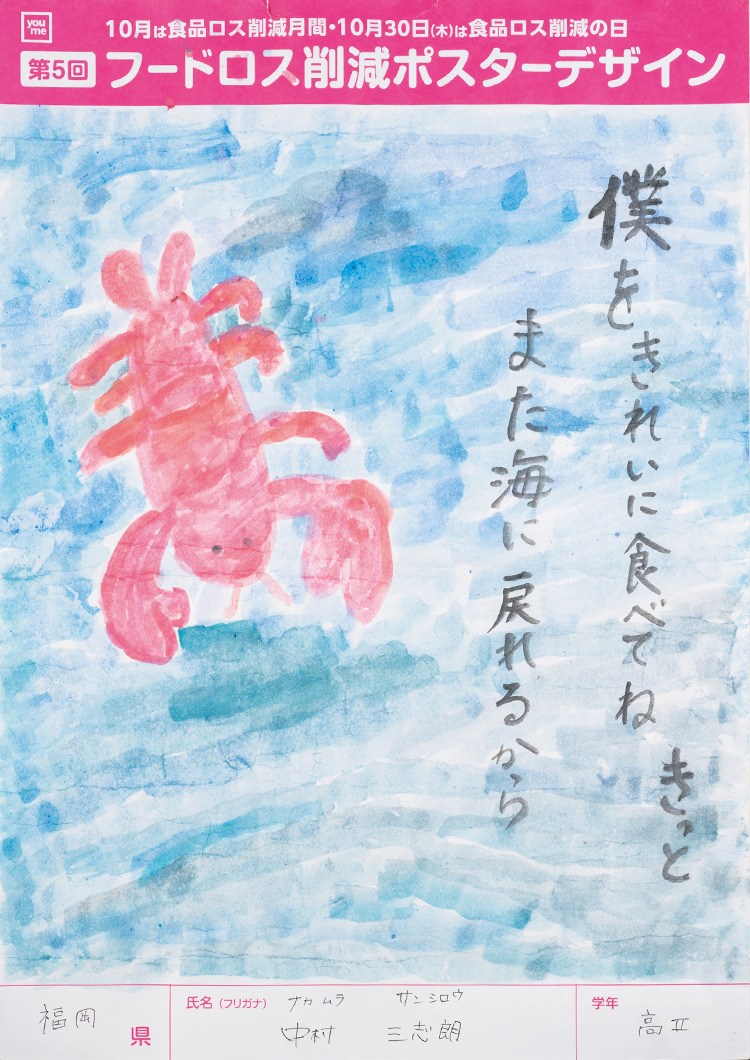 you me
10月は食品ロス削減月間・10月30日(木)は食品ロス削減の日
第5回 フードロス削減ポスターデザイン
僕をきれいに食べてね きっと
また海に戻れるから
福岡 県
氏名(フリガナ) ナカムラ サンシロウ
中村 三志朗
学年
高II